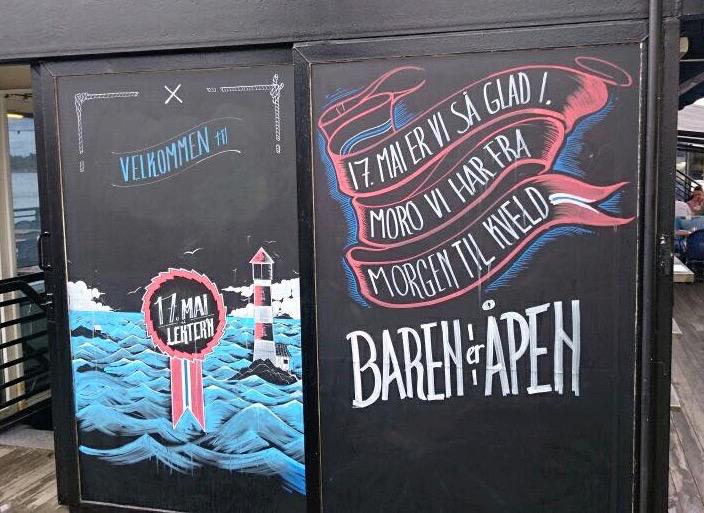 VELKOMMEN til
17. MAI
LEKTER'N
17. MAI ER VI SÅ GLAD !.
MORO VI HAR FRA
MORGEN TIL KVELD
BAREN er ÅPEN